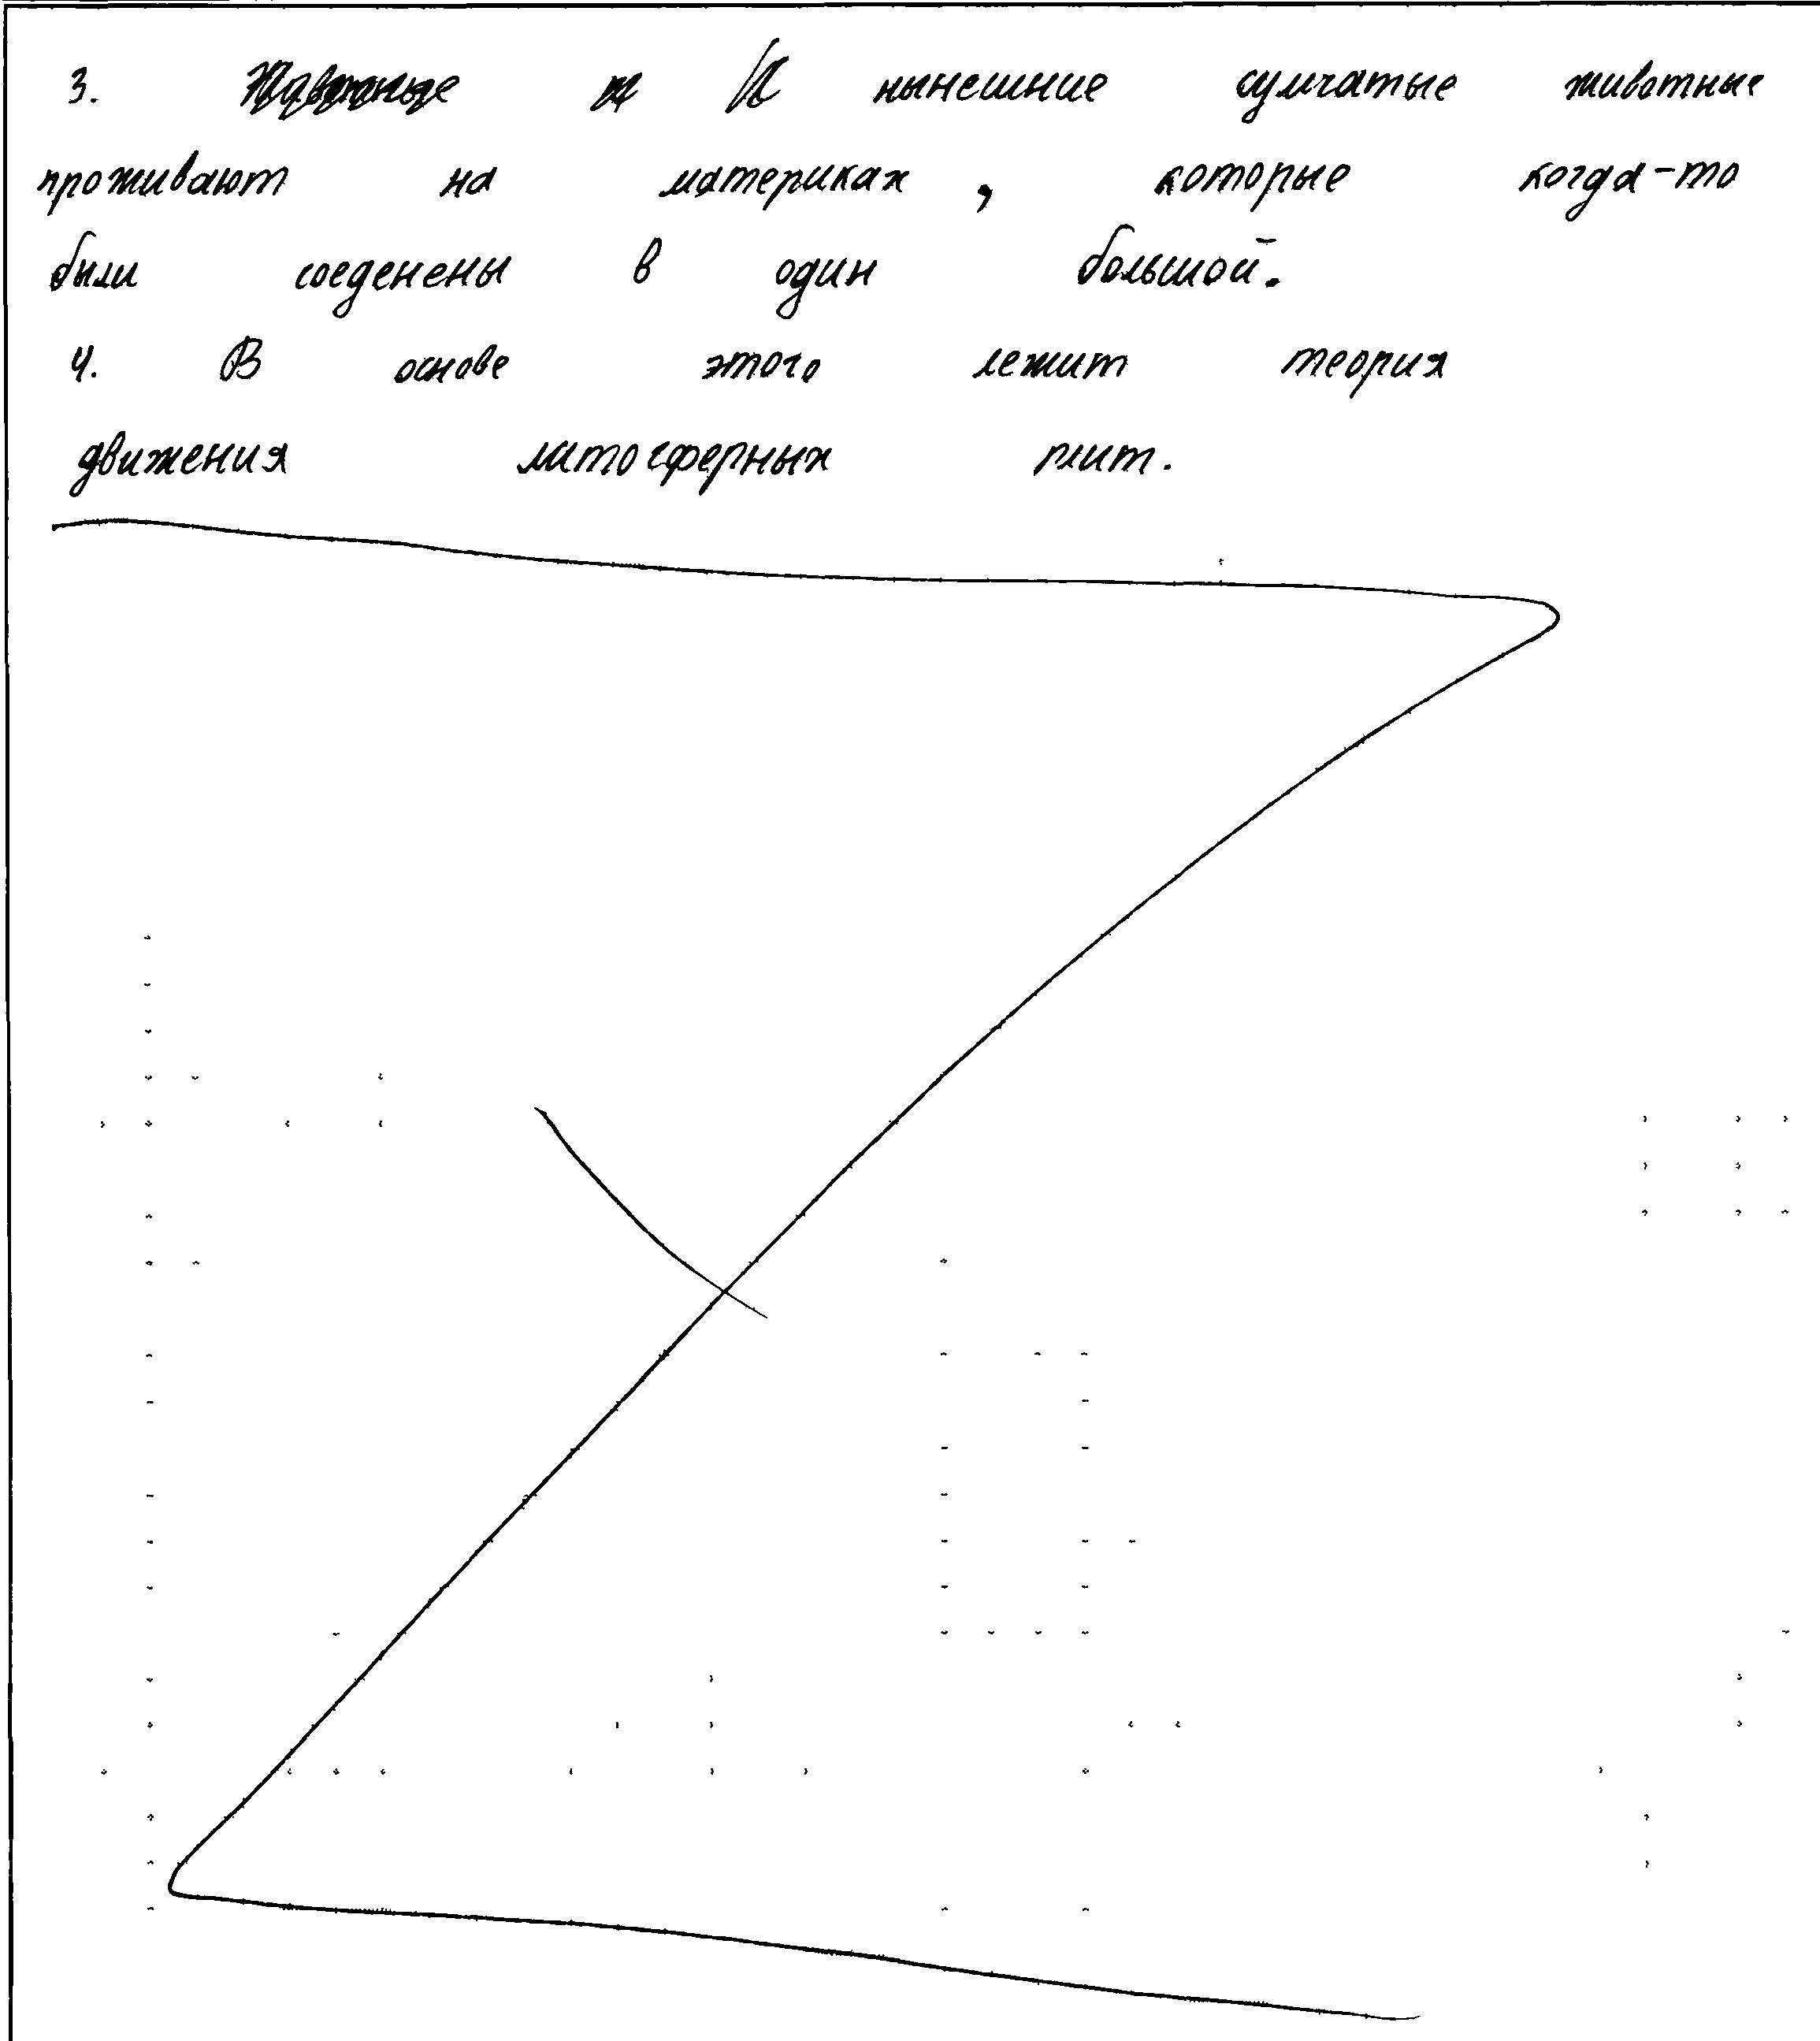 3. И нынешние сумчатые животные
проживают на материках, которые когда-то
были соеденены в один большой.
4. В основе этого лежит теория
движения литосферных плит.